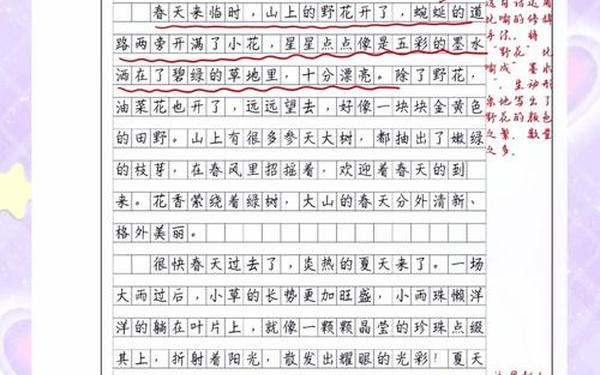 春天来临时，山上的野花开了，蜿蜒的道
路两旁开满了小花，星星点点像是五彩的墨水
洒在了碧绿的草地里，十分漂亮。除了野花，
油菜花也开了，远远望去，好像一块块金黄色
的田野。山上有很多参天大树，都抽出了嫩绿
的枝芽，在春风里招摇着，欢迎着春天的到
来。花香萦绕着绿树，大山的春天分外清新、
格外美丽。
很快春天过去了，炎热的夏天来了。一场
大雨过后，小草的长势更加旺盛，小雨珠懒洋
洋的躺在叶片上，就像一颗颗晶莹的珍珠点缀
其上，折射着阳光，散发出耀眼的光彩！夏天
比喻的修辞
手法，将
"野花"比
喻成"墨水
"，生动形
象地写出了
野花的颜色
之繁，数量
之多。